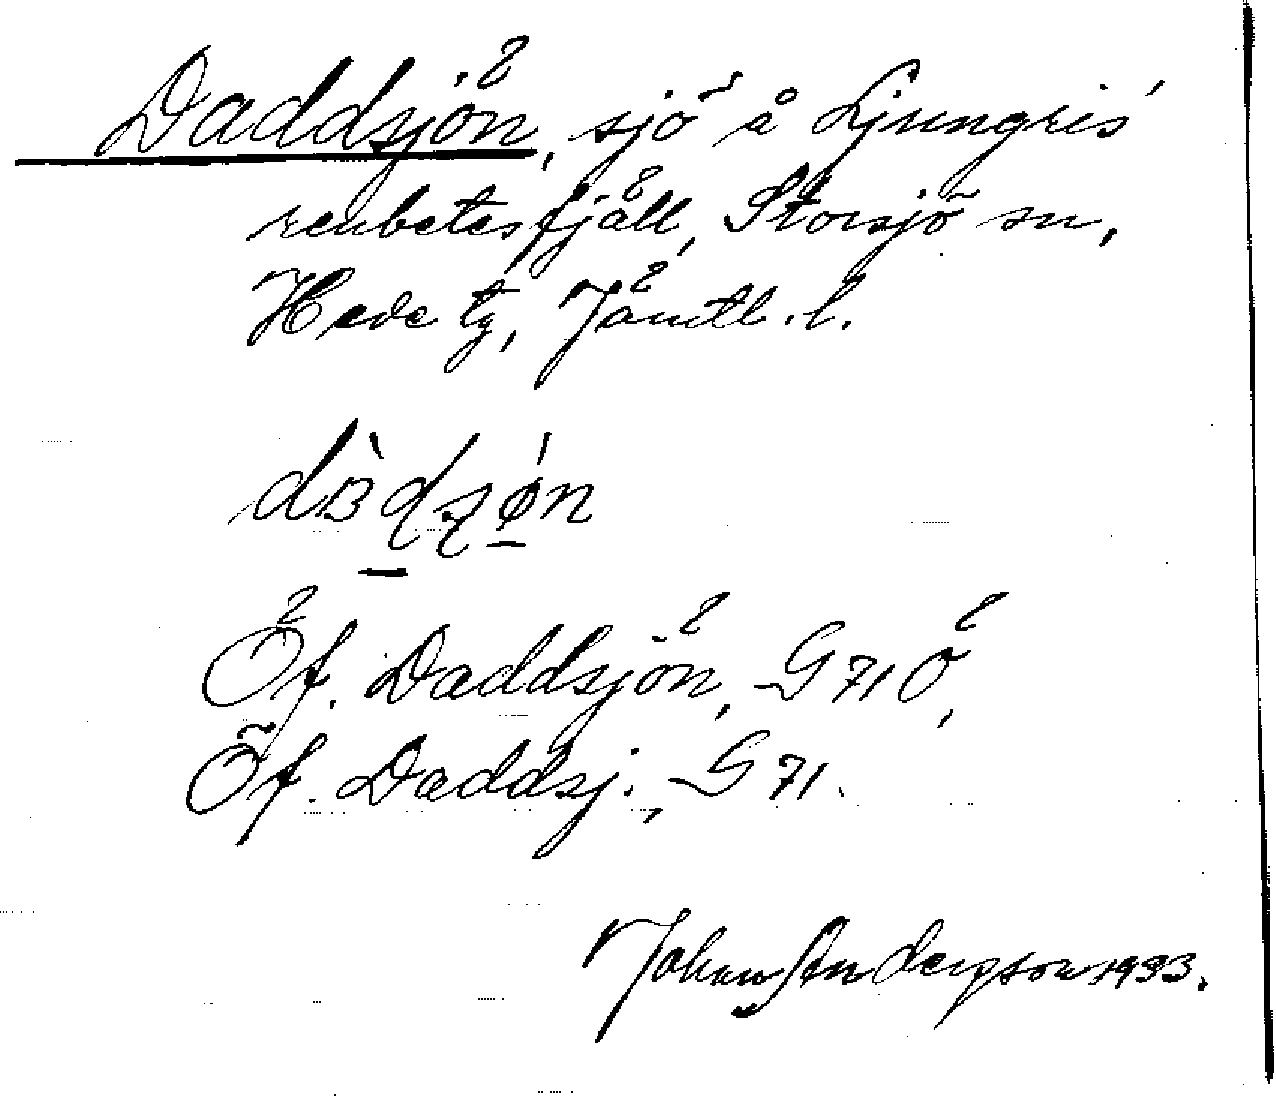 Daddsjön, sjö å Ljungris
renbetesfjäll, Storsjö sn,
Hede tg, Jämtl. l.
Öf. Daddsjön, G 71 Ö,
Öf. Daddsj., G 71.
Johan Anderson 1933.